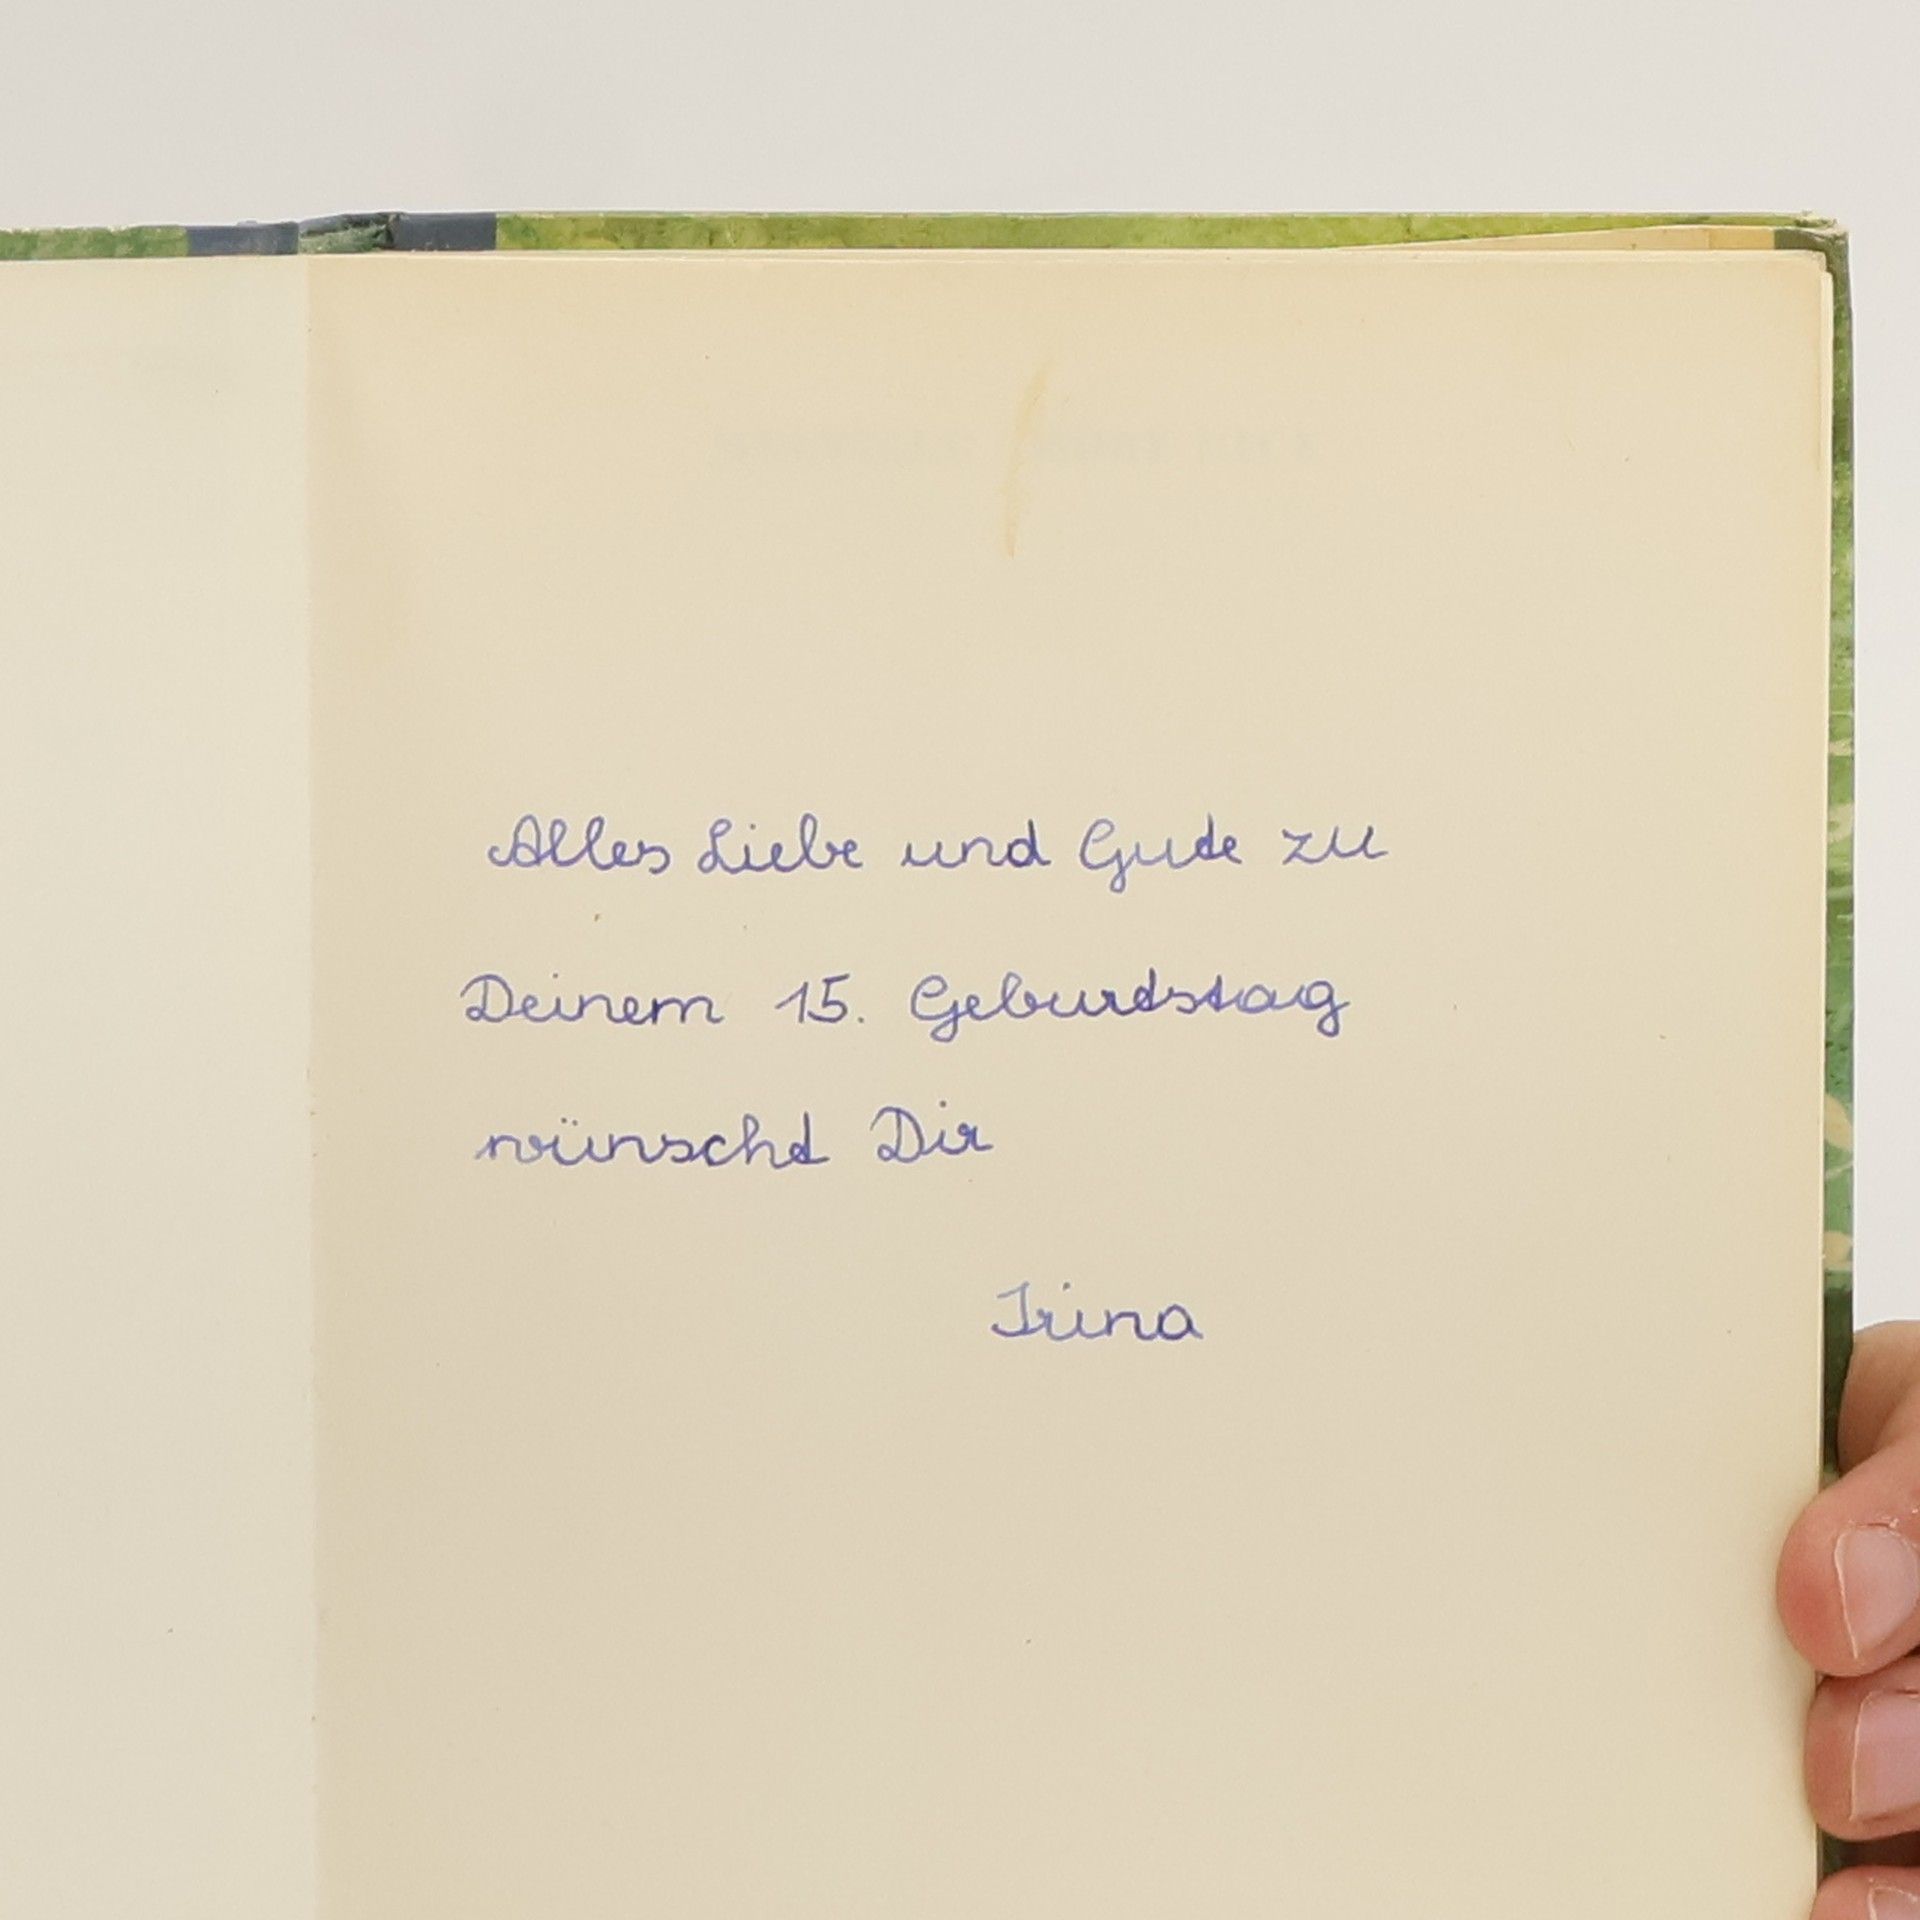 Alles Liebe und Gute zu
Deinem 15. Geburtstag
wünscht Dir
Irina